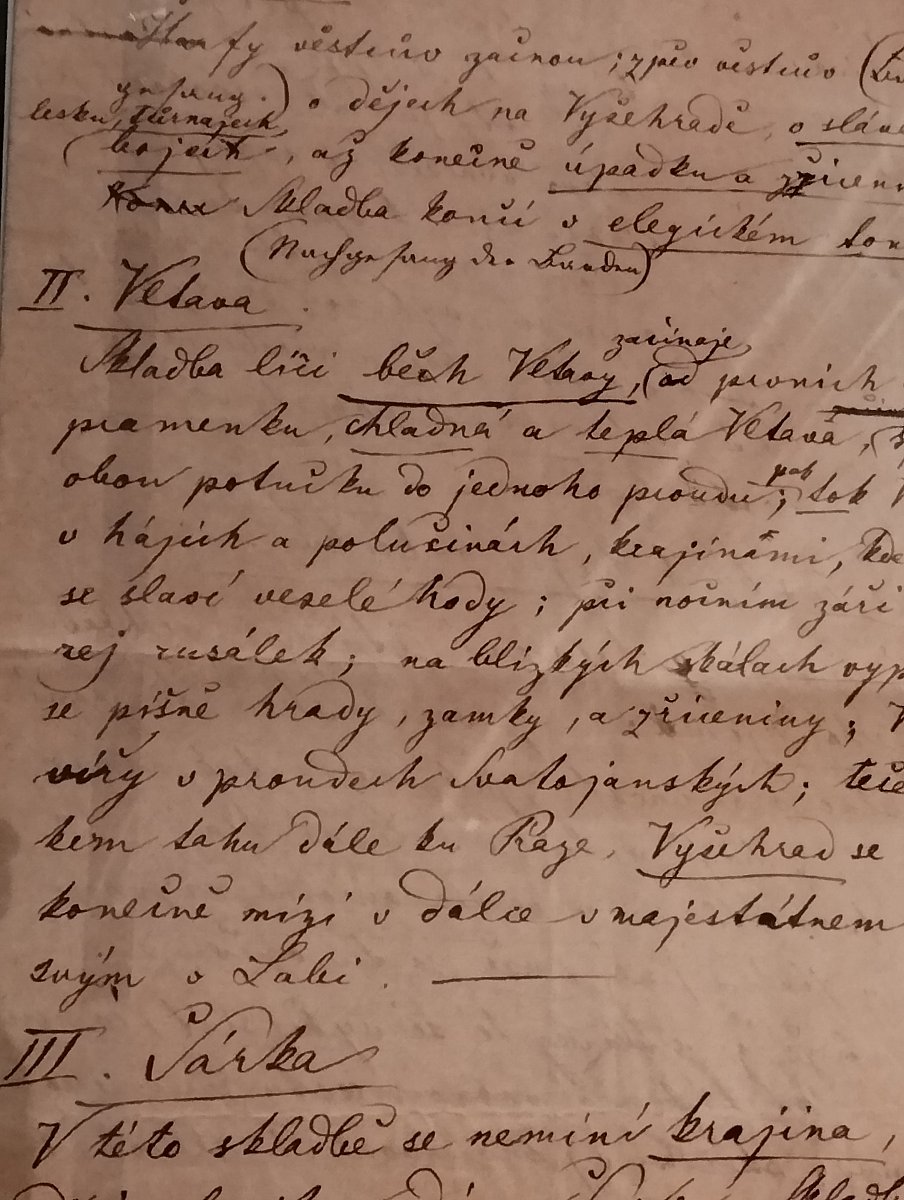 Harfy věstcův začnou; zpěv věstcův (Bar
gesang.) o dějech na Vyšehradě, o sláve
lesku, turnajech,
bojech, až konečně úpadku a zřícenin
Skladba končí v elegickém ton
(Nachgesang der Barden)
II. Vltava.
Skladba líči běh Vltavy, začinaje od prvních
pramenku, chladná a teplá Vltava, s
obou potučku do jednoho proudu; pak tok V
v hájich a polučinách, krajinami, kde
se slaví veselé hody; při nočním záři
rej rusálek; na blízkých skálach vyp
se pišně hrady, zamky, a zřiceniny; V
vířy v proudech Svatojanských; teče
kem tahu dále ku Praze, Vyšehrad se
konečně mizi v dálce v majestátnem
svým v Labi.
III. Šárka
V této skladbě se nemíní krajina,